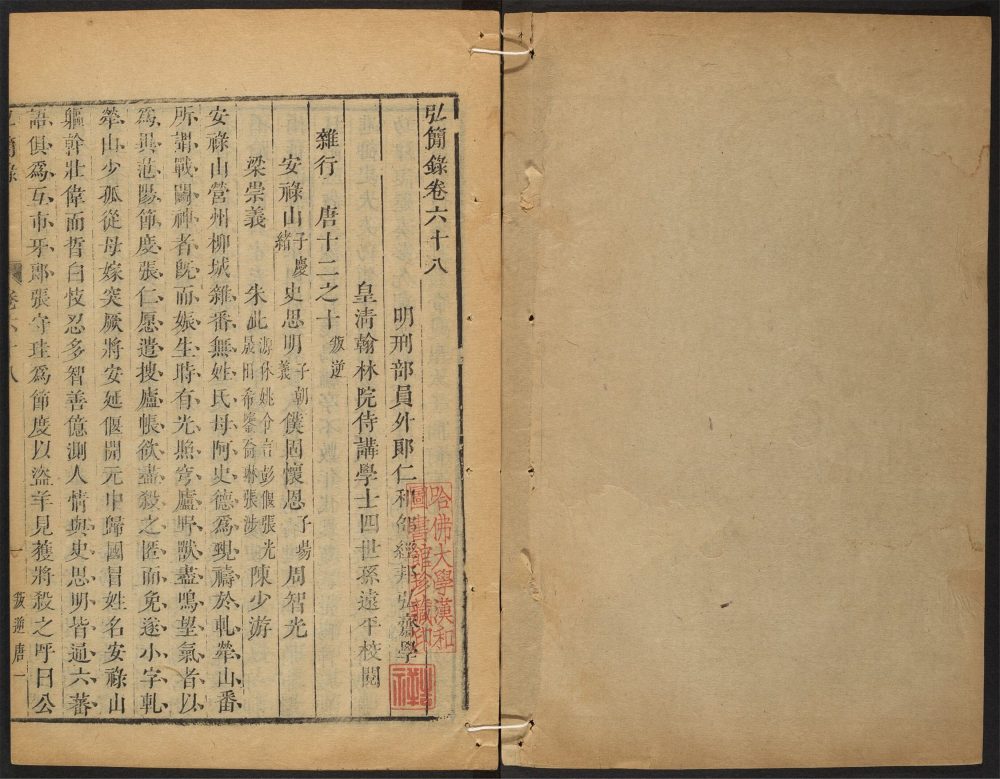 弘簡錄卷六十八
明刑部員外郎仁和邵經邦弘齋學
皇清翰林院侍講學士四世孫遠平校閱
雜行 唐十二之十 叛逆
安祿山 子慶緒 史思明 子朝義 僕固懷恩 子瑒 周智光
梁崇義 朱泚 源休姚令言彭偃張光晟田希鑒喬琳張涉 陳少游
安祿山營州柳城雜番無姓氏母阿史德爲覡禱於軋犖山番
所謂戰鬬神者既而娠生時有光照穹廬野獸盡鳴望氣者以
爲異范陽節度張仁愿遣搜廬帳欲盡殺之匿而免遂小字軋
犖山少孤從母嫁突厥將安延偃開元中歸國冒姓名安祿山
軀幹壯偉而晳白忮忍多智善億測人情與史思明皆通六蕃
語俱爲互市牙郎張守珪爲節度以盜羊見獲將殺之呼曰公
卷六十八
一
叛逆唐一
哈佛大學漢和
圖書館珍藏印